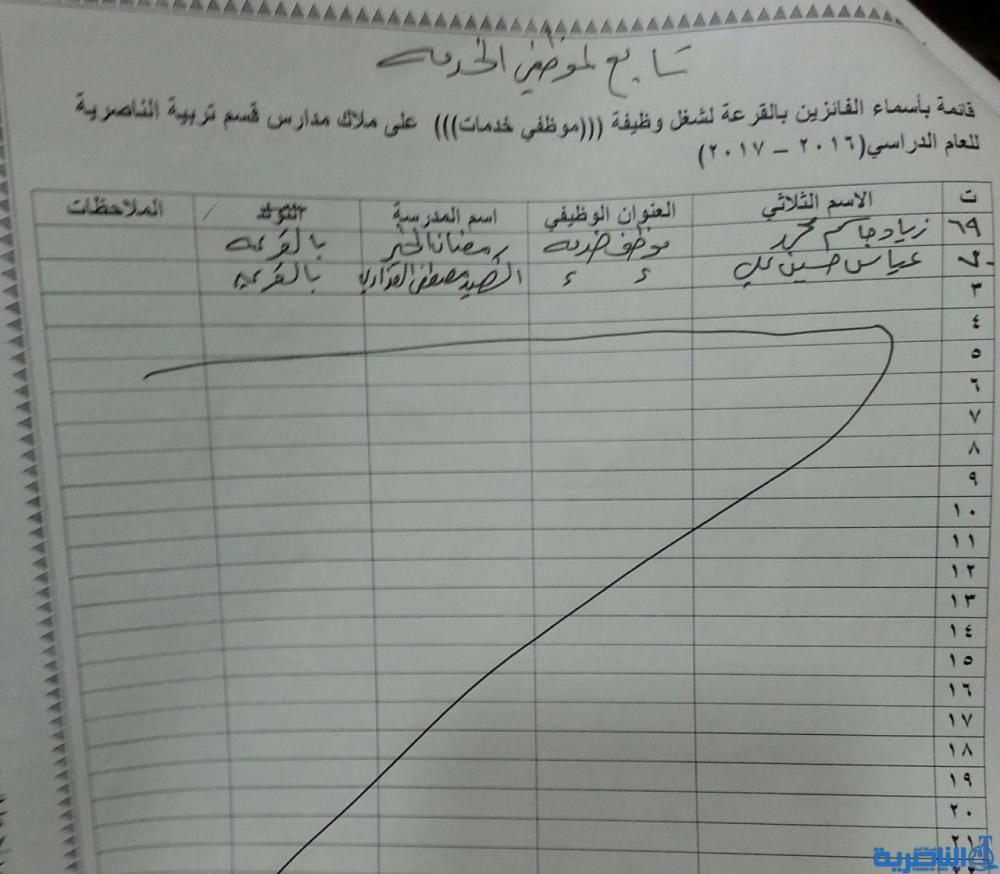 تابع لموظفي الخدمه
قائمة بأسماء الفائزين بالقرعة لشغل وظيفة (((موظفي خدمات))) على ملاك مدارس قسم تربية الناصرية
للعام الدراسي(٢٠١٦ – ٢٠١٧)
ت الاسم الثلاثي العنوان الوظيفي اسم المدرسة التولد / الملاحظات
٦٩ زياد جاسم محمد موظف خدمه رمضان الخير بالقرعه
عباس حسين علي ء ء الشهيد مصطفى العذاري بالقرعه
٣
٤
٥
٦
٧
٨
٩
١٠
١١
١٢
١٣
١٤
١٥
١٦
١٧
١٨
١٩
٢٠
٢١
٢٢
الناصرية